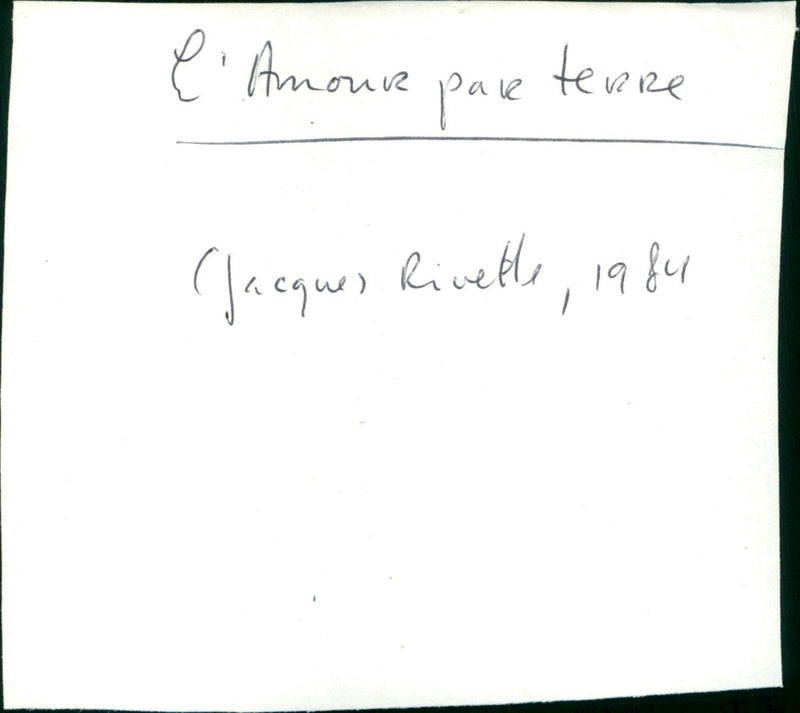 L'Amour par terre
(Jacques Rivette, 1984